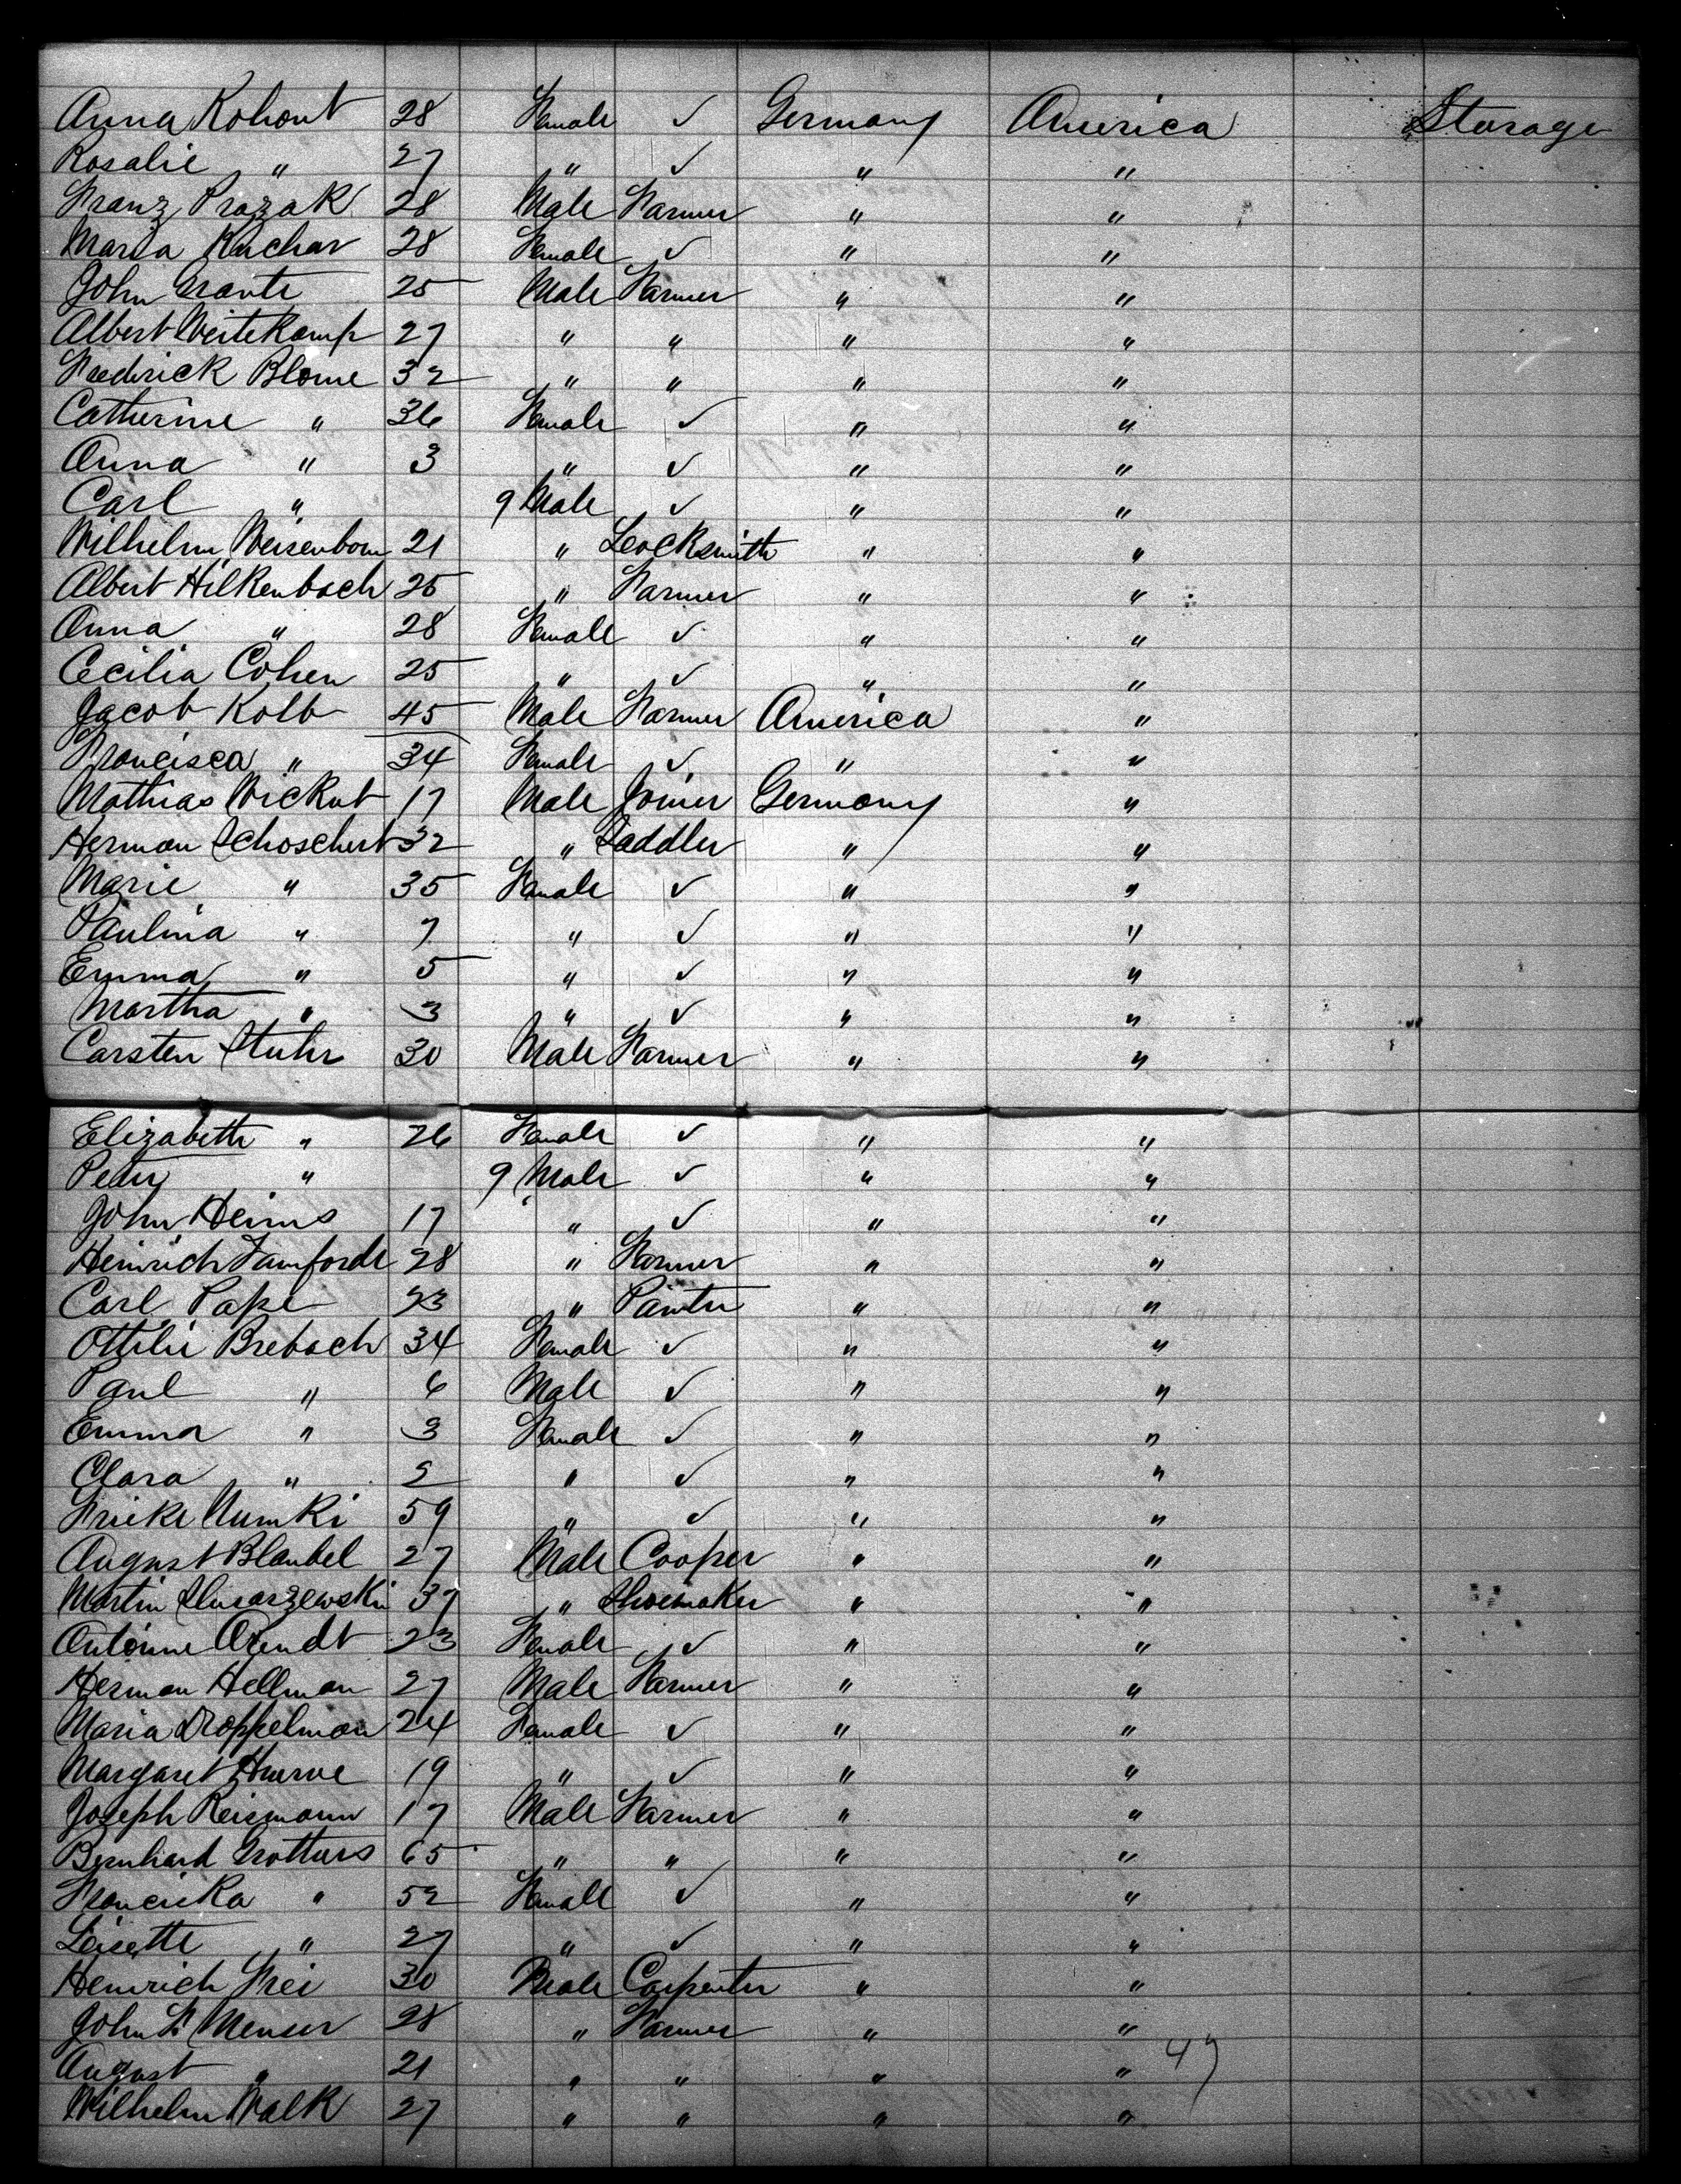 Anna Kohout 28 Female ✓ Germany America Storage
Rosalie " 27 " ✓ " "
Franz Prazak 28 Male Farmer " "
Maria Kuchar 28 Female ✓ " "
John Grante 25 Male Farmer " "
Albert Weitekamp 27 " " " "
Frederick Blome 32 " " " "
Catherine " 36 Female ✓ " "
Anna " 3 " ✓ " "
Carl " 9 Male ✓ " "
Wilhelm Weisenborn 21 " Locksmith " "
Albert Hilkenbach 25 " Farmer " "
Anna " 28 Female ✓ " "
Cecilia Cohen 25 " ✓ " "
Jacob Kolb 45 Male Farmer America "
Francisca " 34 Female ✓ " "
Mathias Wickut 17 Male Joiner Germany "
Herman Schoschert 32 " Saddler " "
Marie " 35 Female ✓ " "
Paulina " 7 " ✓ " "
Emma " 5 " ✓ " "
Martha " 3 " ✓ " "
Carsten Stuhr 30 Male Farmer " "
Elizabeth " 26 Female ✓ " "
Peter " 9 Male ✓ " "
John Heims 17 " ✓ " "
Heinrich 28 " Farmer " "
Carl Pape 23 " Painter " "
Ottilie Brebach 34 Female ✓ " "
Paul " 6 Male ✓ " "
Emma " 3 Female ✓ " "
Clara " 2 " ✓ " "
Frieke 59 " ✓ " "
August Blaubel 27 Male Cooper " "
Martin Slusarzewski 37 " Shoemaker " "
Antonine Arendt 23 Female ✓ " "
Herman Hellman 27 Male Farmer " "
Maria Droppelman 24 Female ✓ " "
Margaret 19 " ✓ " "
Joseph Reismann 17 Male Farmer " "
Bernhard Grotturs 65 " " " "
Franciska " 52 Female ✓ " "
Lisette " 27 " ✓ " "
Heinrich Frei 30 Male Carpenter " "
John F. Menser 28 " Farmer " "
August " 21 " " " " 47
Wilhelm Walk 27 " " " "